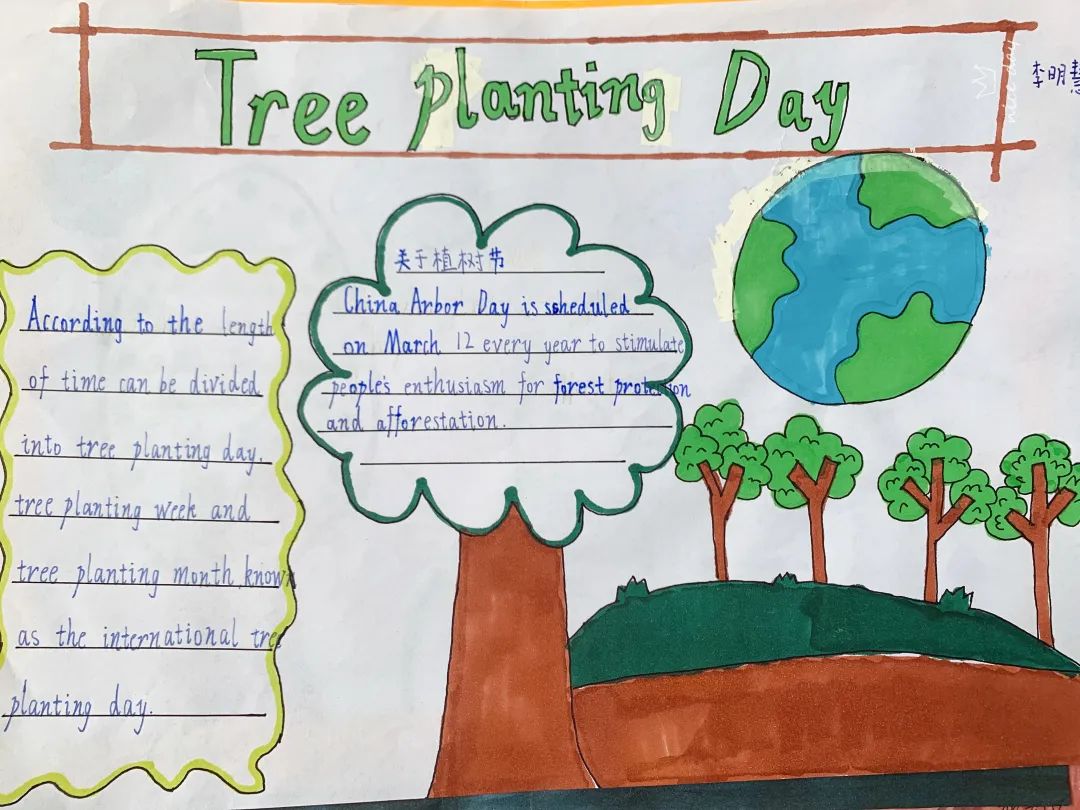 Tree planting Day
李明慧
nice day
According to the length
of time can be divided
into tree planting day.
tree planting week and
tree planting month, known
as the international tree
planting day.
关于植树节
China Arbor Day is scheduled
on March 12 every year to stimulate
people's enthusiasm for forest protection
and afforestation.